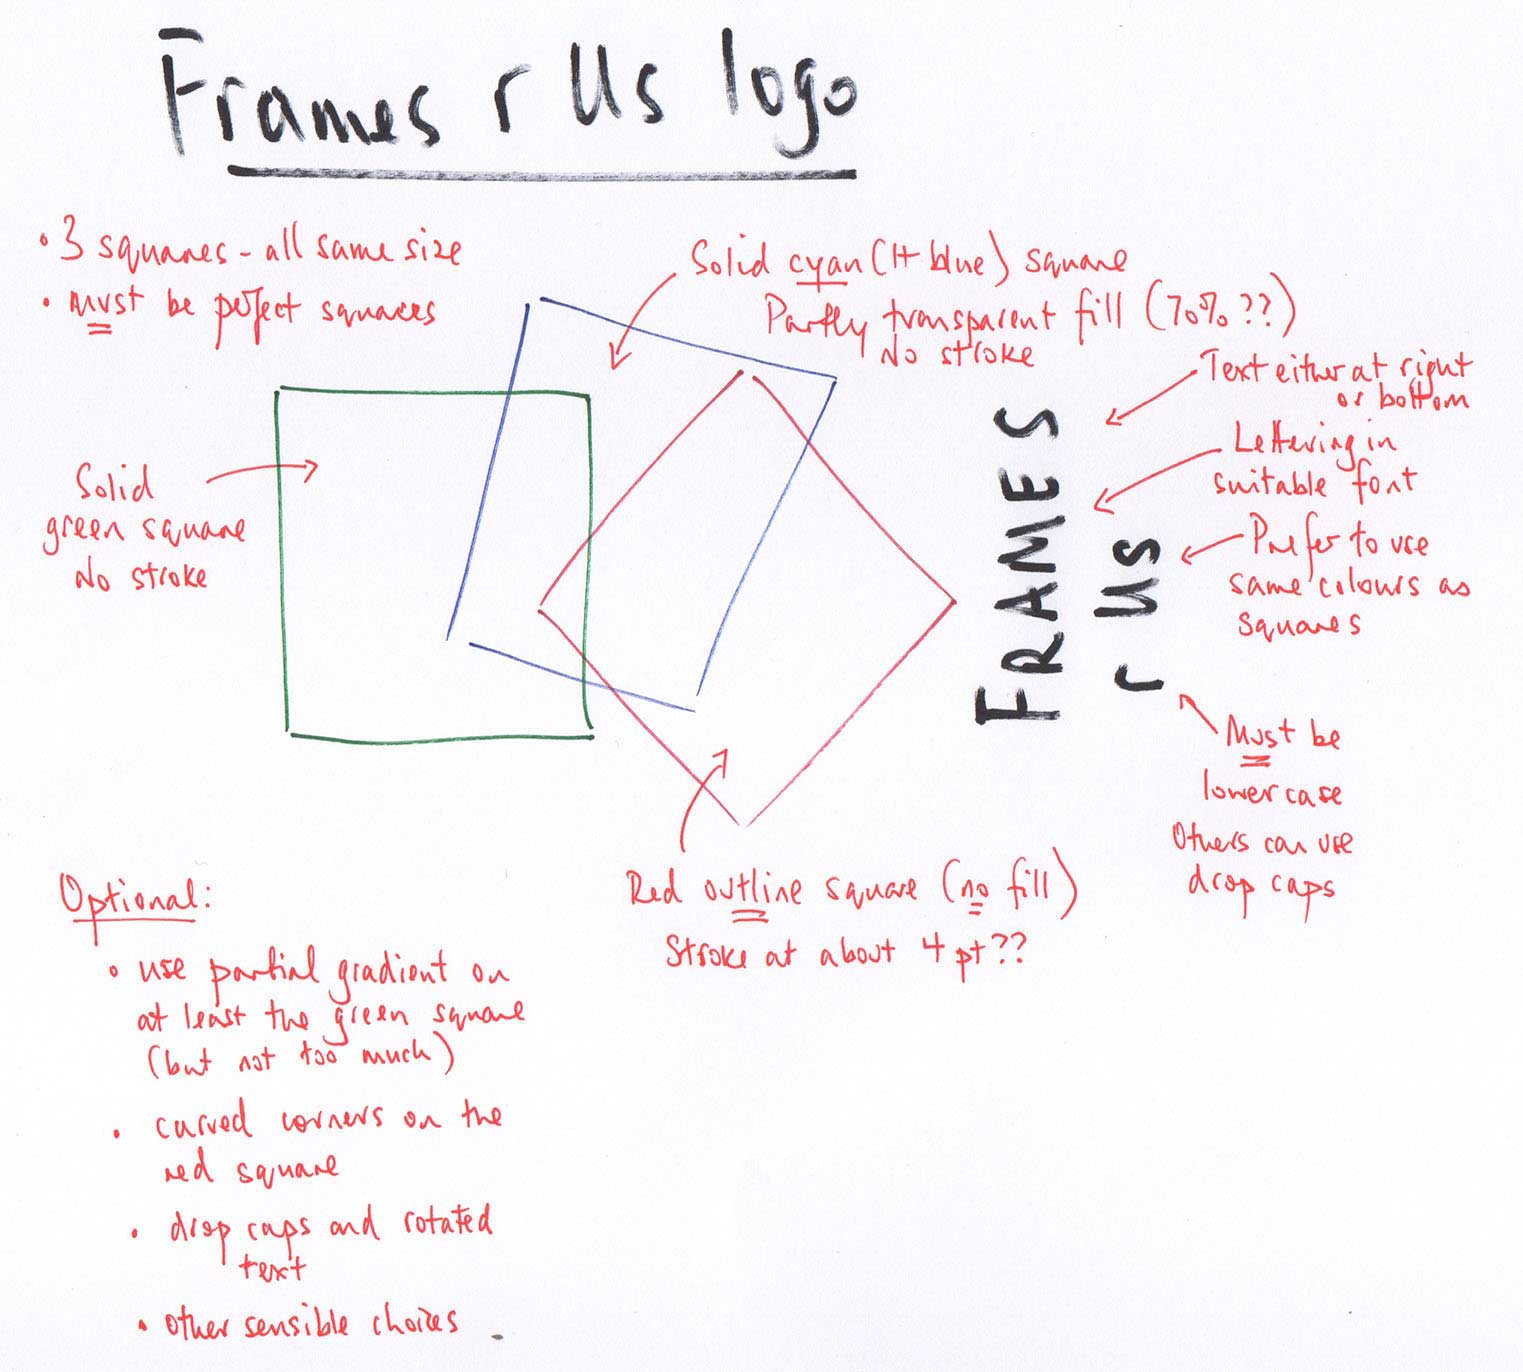 Frames r Us logo
• 3 squares - all same size
• must be perfect squares
Solid cyan (lt blue) square
Partly transparent fill (70% ??)
No stroke
Text either at right
or bottom
Lettering in
suitable font
Prefer to use
same colours as
squares
Solid
green square
No stroke
FRAMES
r Us
Must be
lower case
Others can use
drop caps
Red outline square (no fill)
Stroke at about 4 pt??
Optional:
• use partial gradient on
at least the green square
(but not too much)
• curved corners on the
red square
• drop caps and rotated
text
• other sensible choices